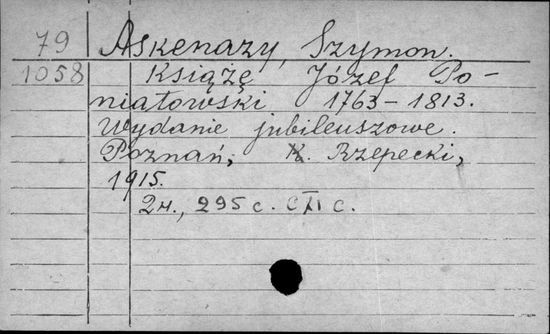 79 Askenazy, Szymon.
1058 Książę Józef Po-
niatowski 1763-1813.
Wydanie jubileuszowe.
Poznań, K. Rzepecki,
1915.
2н., 295 с. CXI с.